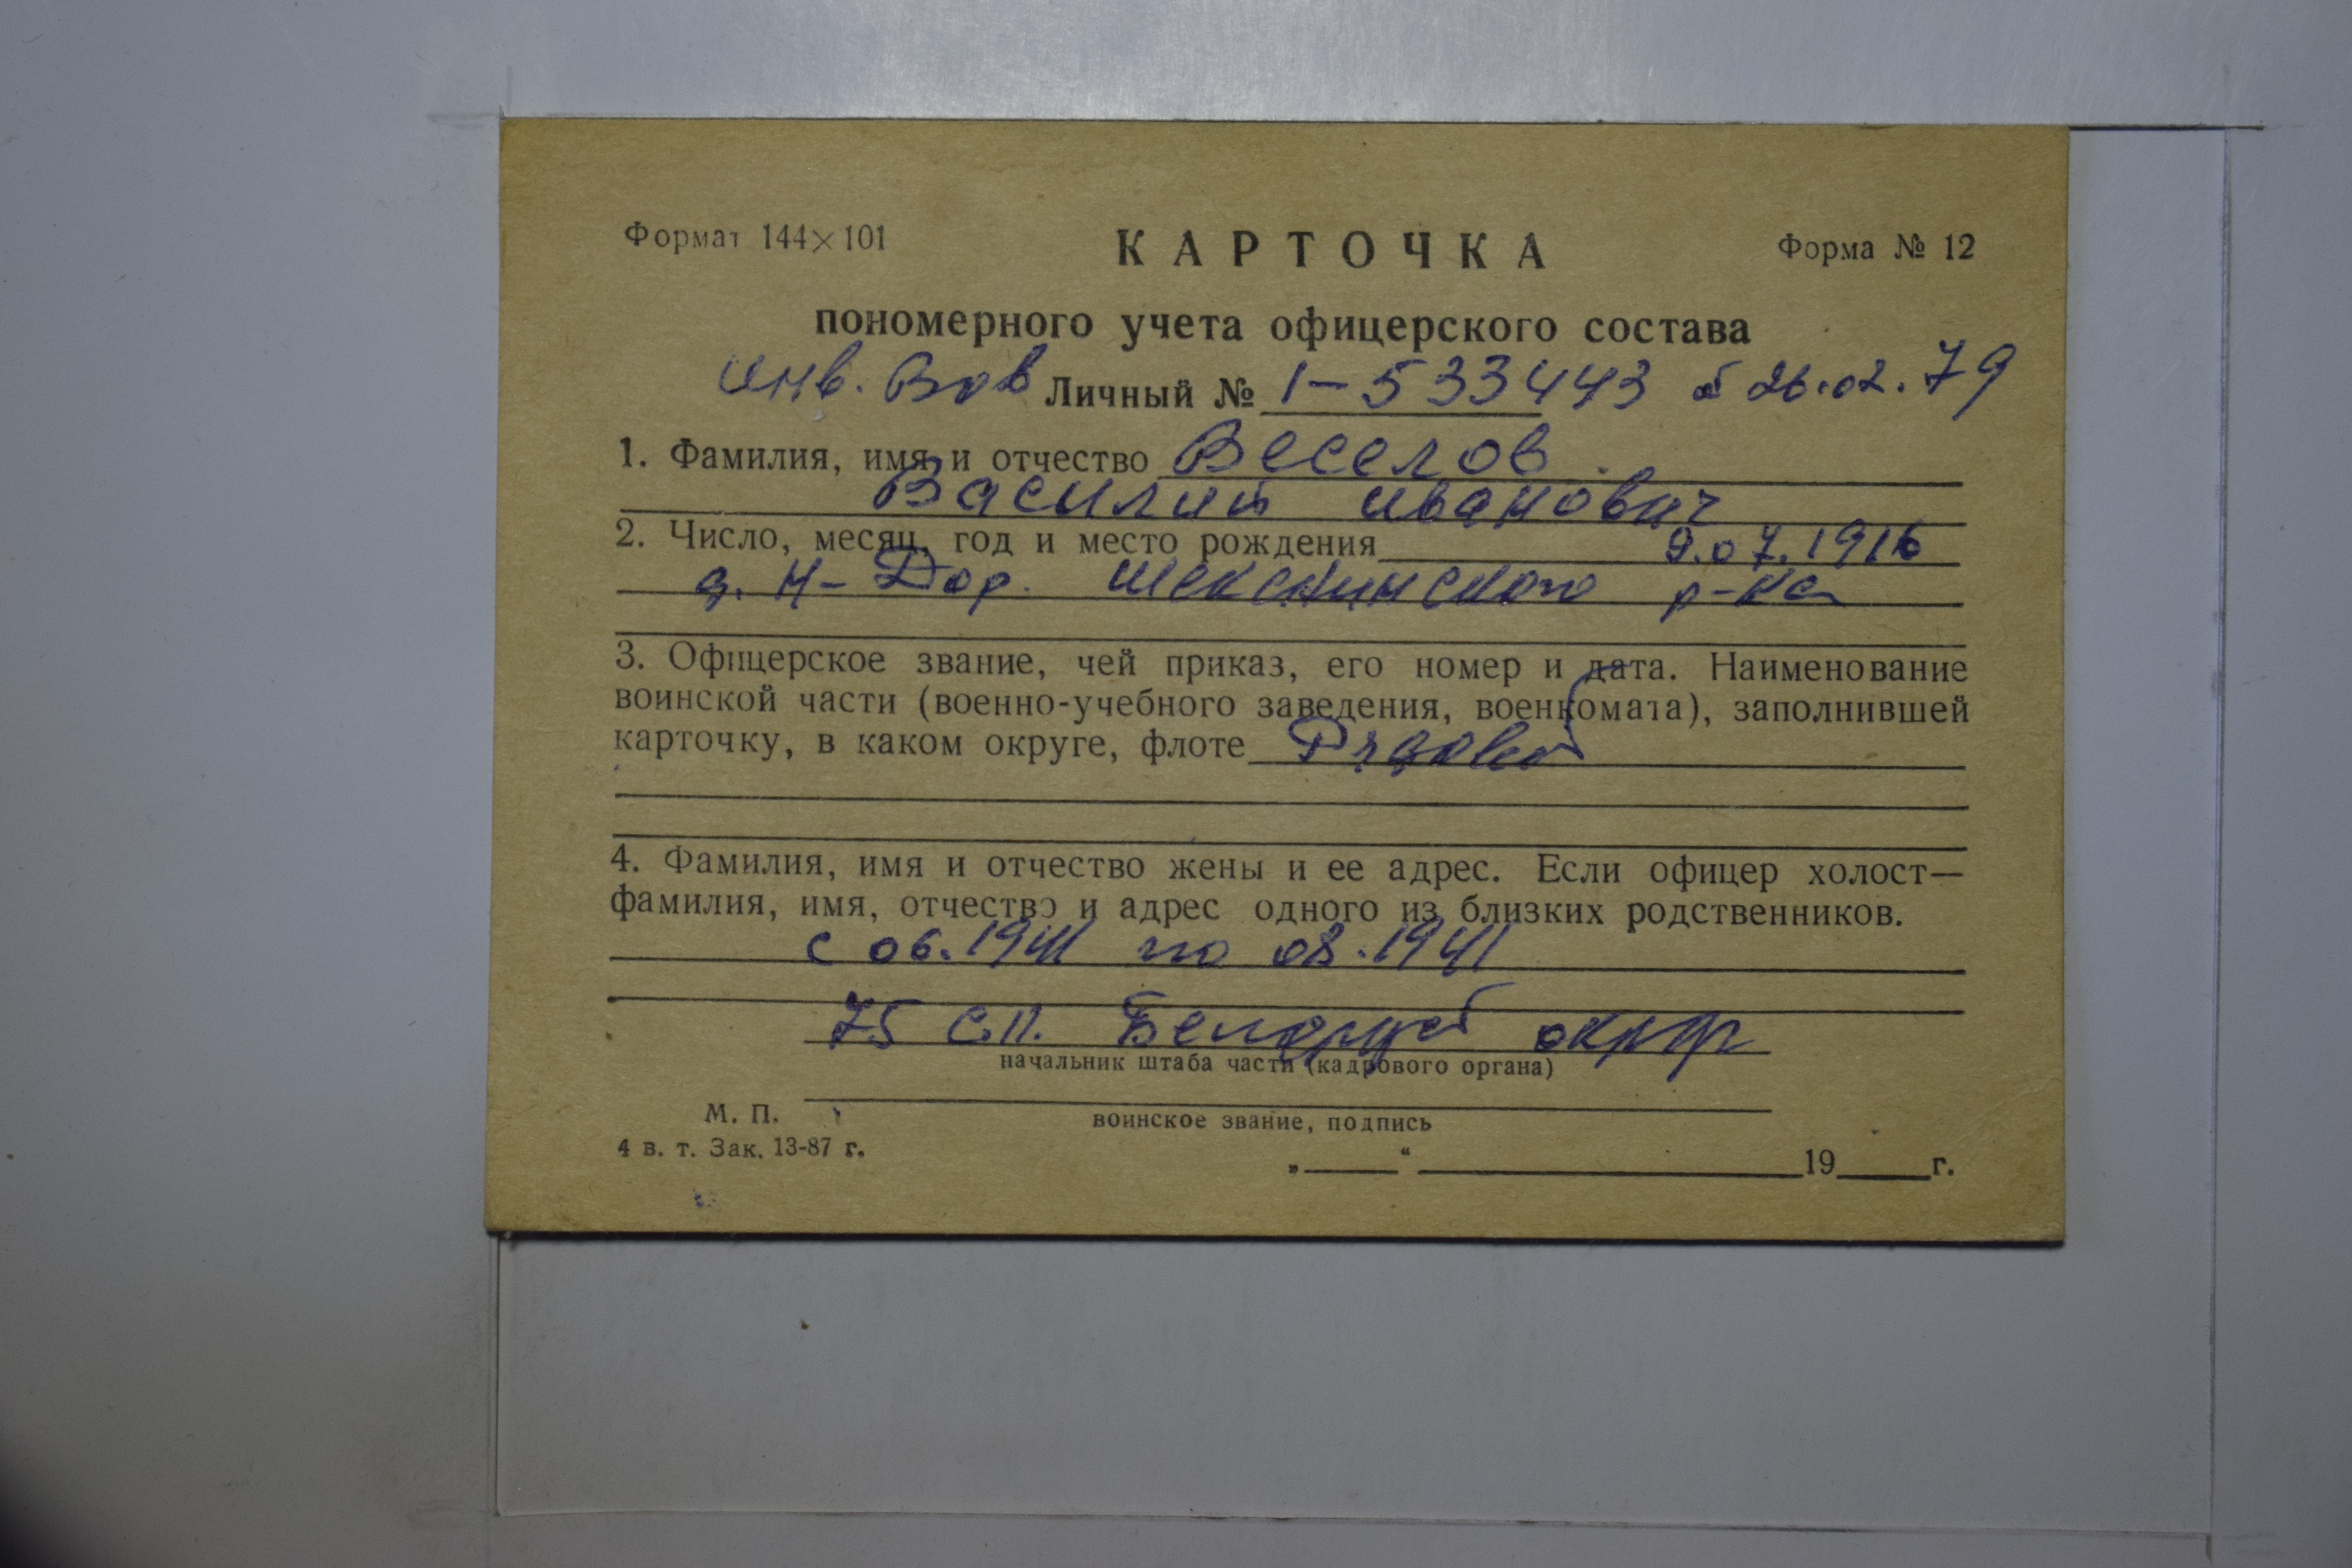 Формат 144×101
КАРТОЧКА
Форма № 12
пономерного учета офицерского состава
инв. Вов Личный № 1-533443 26.02.79
1. Фамилия, имя и отчество Веселов
Василий иванович
2. Число, месяц, год и место рождения 9.07.1916
д. Н-Дор. Шекснинского р-на
3. Офицерское звание, чей приказ, его номер и дата. Наименование
воинской части (военно-учебного заведения, военкомата), заполнившей
карточку, в каком округе, флоте Рядовой
4. Фамилия, имя и отчество жены и ее адрес. Если офицер холост—
фамилия, имя, отчество и адрес одного из близких родственников.
с 06.1941 по 08.1941
75 с.п. округ
начальник штаба части (кадрового органа)
М. П.
воинское звание, подпись
4 в. т. Зак. 13-87 г.
„ “ 19 г.